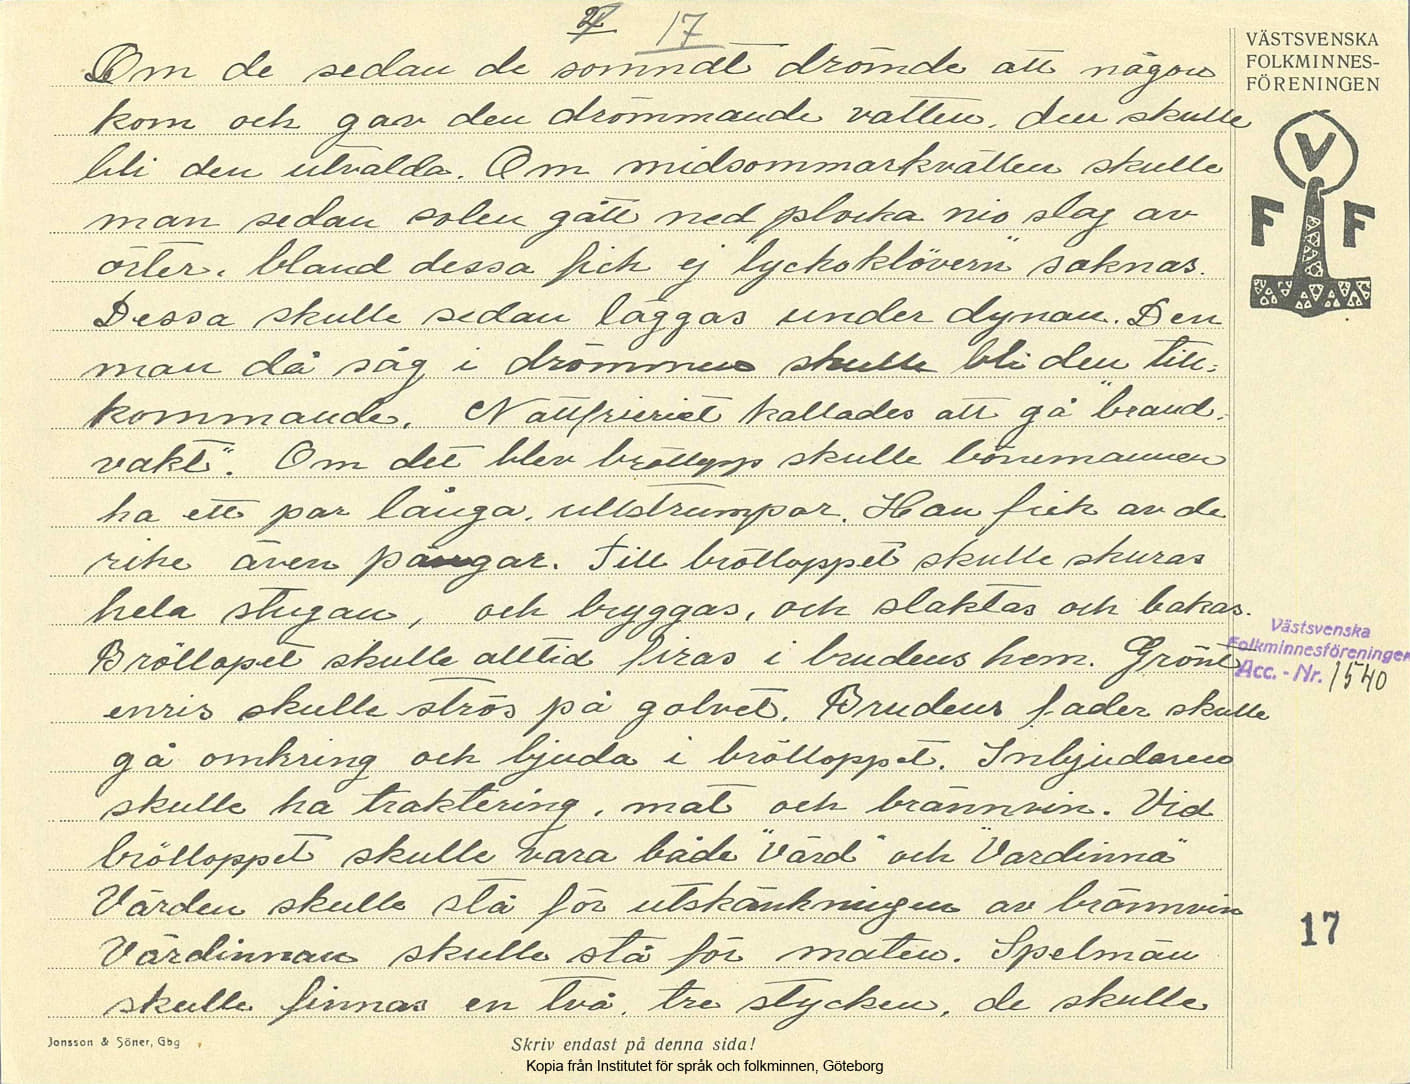 17
Om de sedan de somnat drömde att någon
kom och gav den drömmande vatten, den skulle
bli den utvalda. Om midsommarkvällen skulle
man sedan solen gått ned plocka nio slag av
örter, bland dessa fick ej "lyckoklövern" saknas.
Dessa skulle sedan läggas under dynan. Den
man då såg i drömmen skulle bli den till-
kommande. Nattfrieriet kallades att gå "brand-
vakt". Om det blev bröllopp skulle bönemannen
ha ett par långa, ullstrumpor. Han fick av de
rike även pängar. Till brölloppet skulle skuras
hela stugan, och bryggas, och slaktas och bakas.
Bröllopet skulle alltid firas i brudens hem. Grönt
enris skulle strös på golvet. Brudens fader skulle
gå omkring och bjuda i brölloppet. Inbjudaren
skulle ha traktering, mat och brännvin. Vid
brölloppet skulle vara både "Värd" och "Värdinna"
Värden skulle stå för utskänkningen av brännvin
Värdinnan skulle stå för maten. Spelmän
skulle finnas en två, tre stycken, de skulle
VÄSTSVENSKA
FOLKMINNES-
FÖRENINGEN
V
F F
Västsvenska
Folkminnesföreningen
Acc. - Nr. 1540
17
Jonsson & Söner, Gbg
Skriv endast på denna sida!
Kopia från Institutet för språk och folkminnen, Göteborg